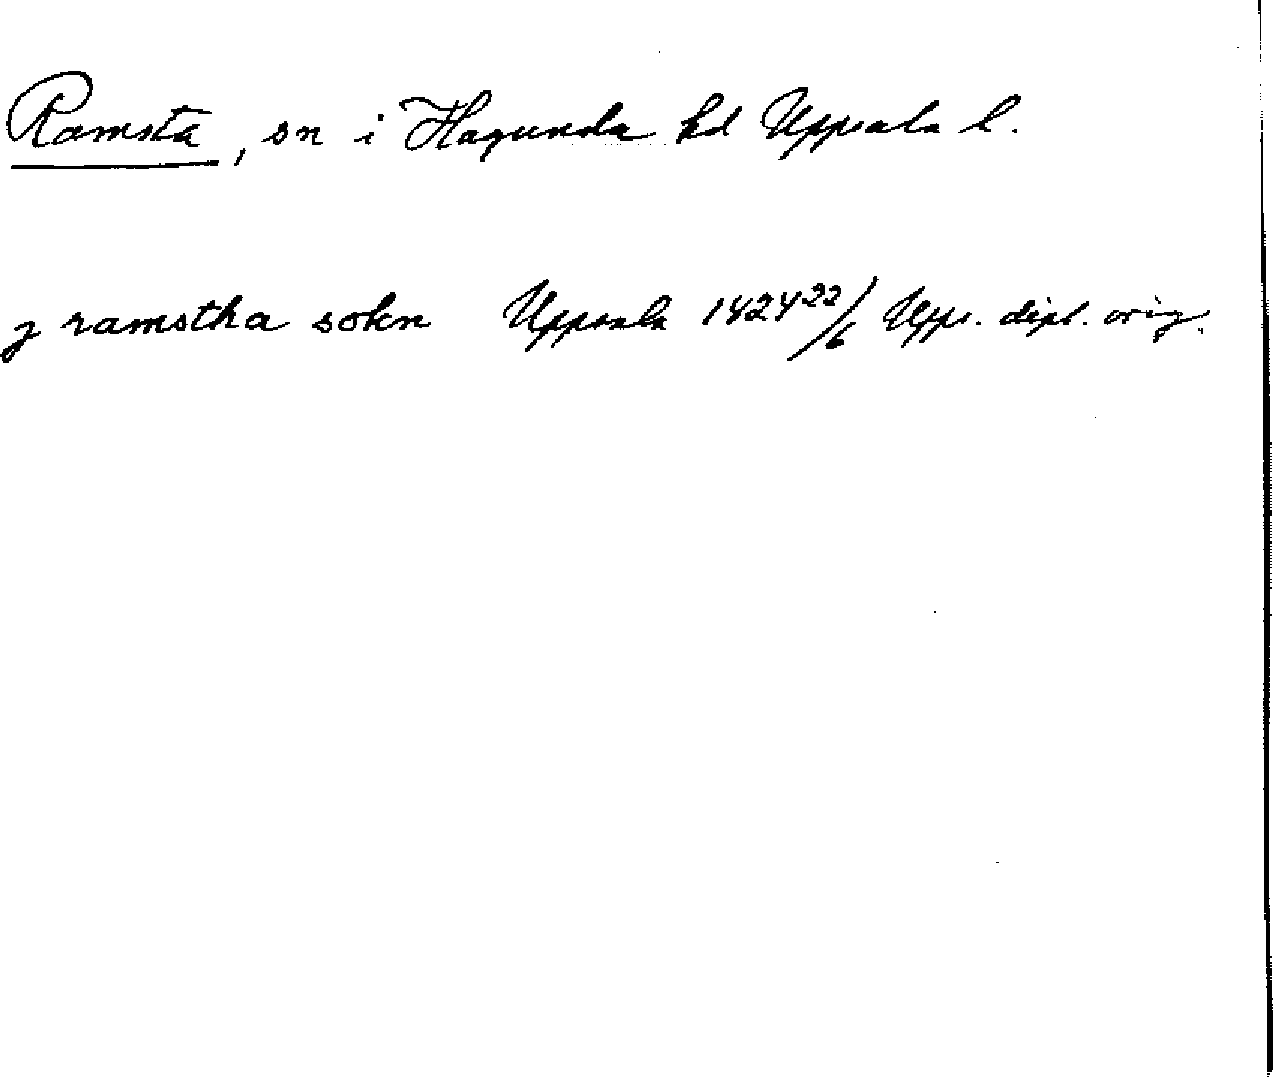 Ramsta, sn i Hagunda hd Uppsala l.
J ramstha sokn Uppsala 1424 22/6 Upps. dipl. orig.